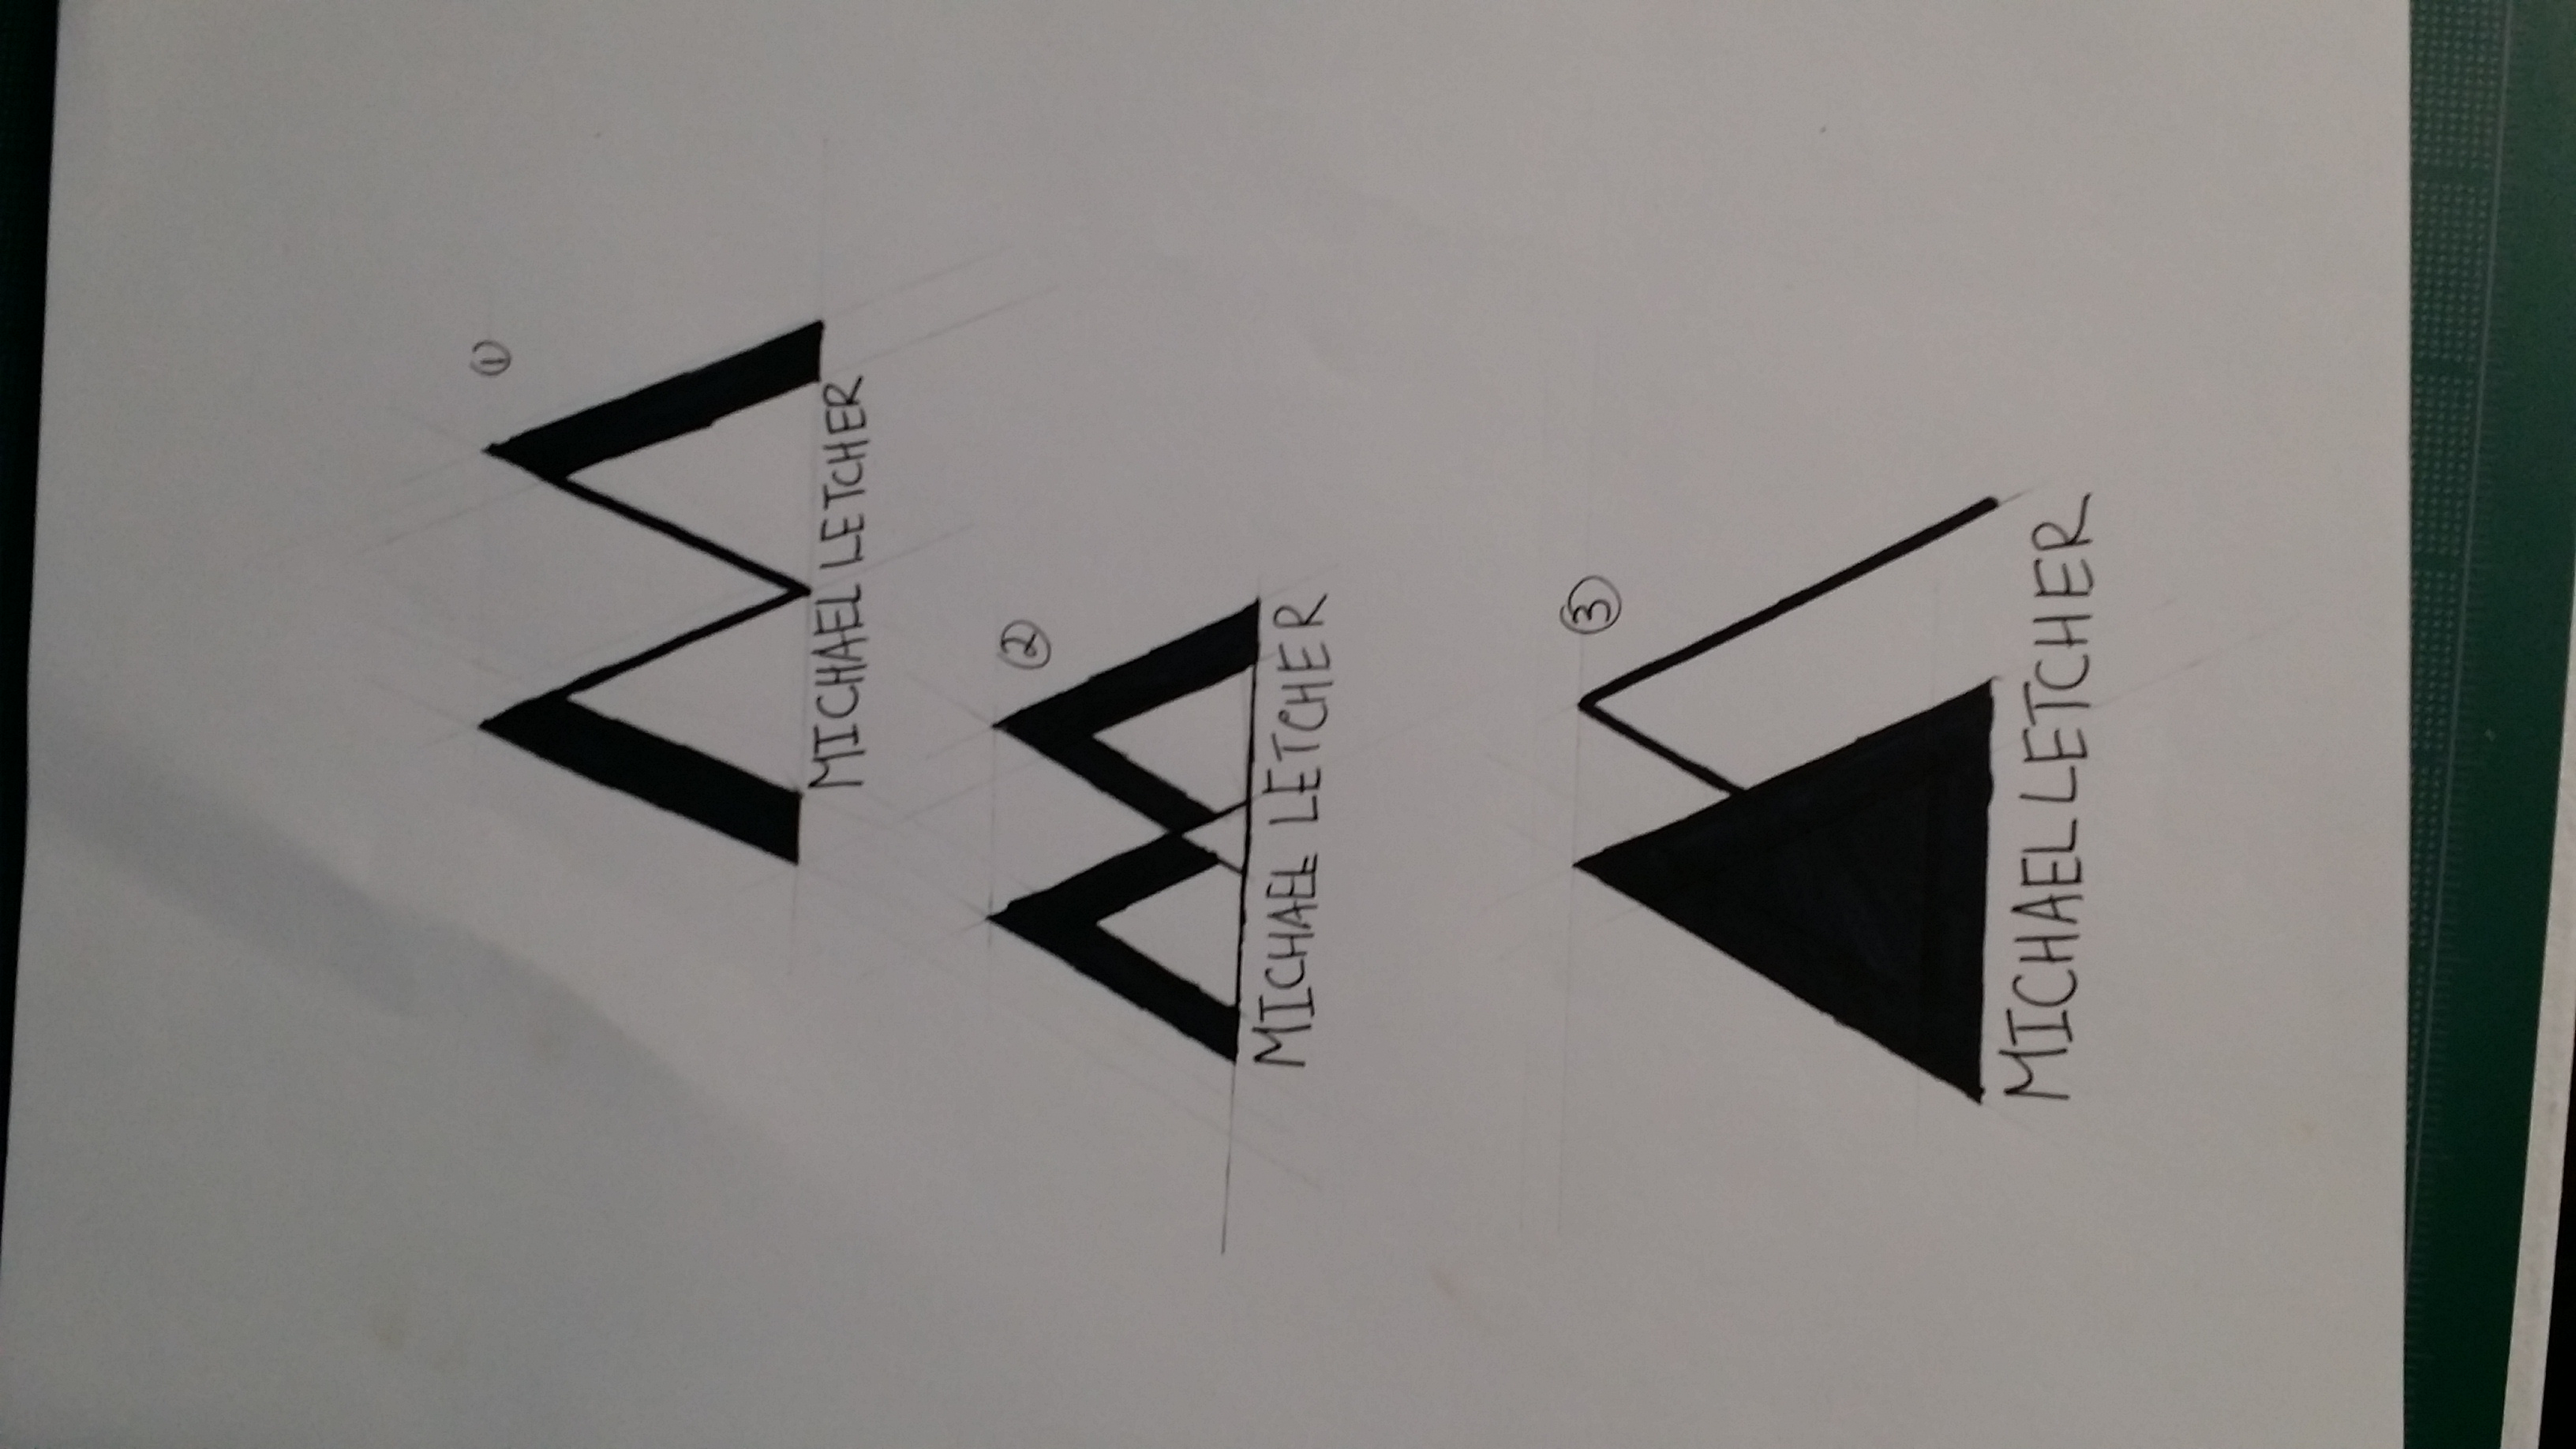 ①
MICHAEL LETCHER
②
MICHAEL LETCHER
③
MICHAEL LETCHER